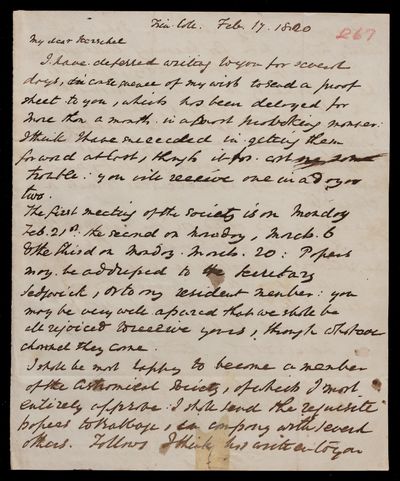 Trin. Coll. Feb. 17. 1820
267
My dear Herschel
I have deferred writing to you for several
days, in consequence of my wish to send a proof
sheet to you, which has been delayed for
more than a month in a most provoking manner:
I think I have succeeded in getting them
forward at last, though it has cost me some
trouble: you will receive one in a day or
two.
The first meeting of the Society is on Monday
Feb. 21st, the second on Monday, March. 6
& the third on Monday. March. 20: Papers
may be addressed to the Secretary
Sedgwick, or to any resident member: you
may be very well assured that we shall be
all rejoiced to receive yours, through whatever
channel they come.
I shall be most happy to become a member
of the Astronomical Society, of which I most
entirely approve: I shall send the requisite
papers to Babbage, in company with several
others. Fallows I think has written to you